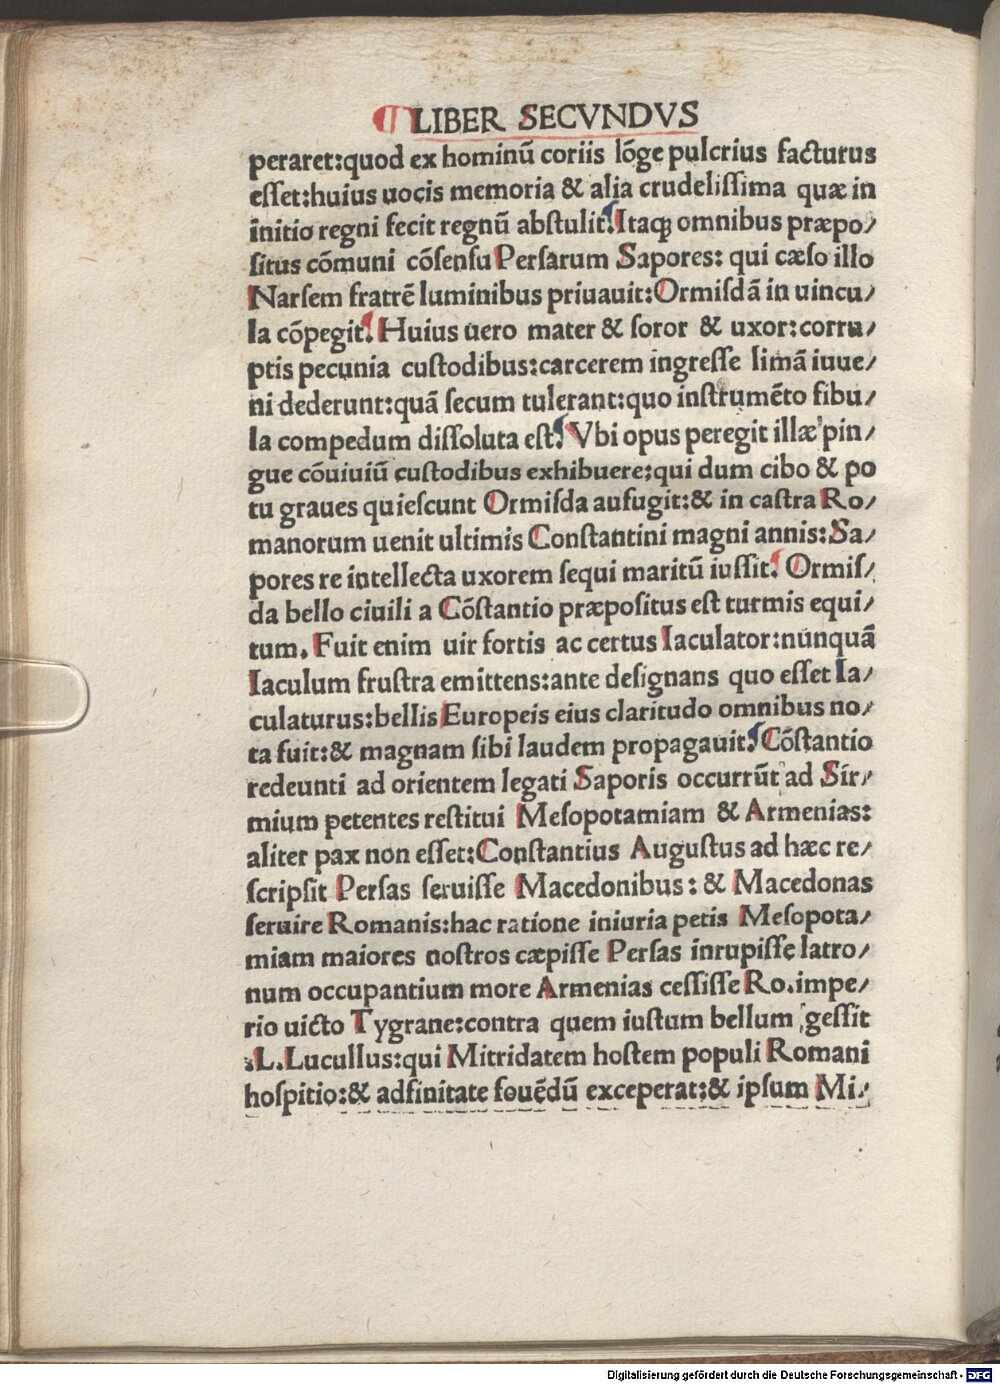 LIBER SECVNDVS
peraret:quod ex hominū coriis lōge pulcrius facturus
eſſet:huius uocis memoria & alia crudeliſſima quæ in
initio regni fecit regnū abſtulit.Itaqꝫ omnibus præpo/
ſitus cōmuni cōſenſu Perſarum Sapores: qui cæſo illo
Narſem fratrē luminibus priuauit:Ormiſdā in uincu/
la cōpegit. Huius uero mater & ſoror & uxor:corru/
ptis pecunia cuſtodibus:carcerem ingreſſe limā iuue/
ni dederunt:quā ſecum tulerant:quo inſtrumēto fibu/
la compedum diſſoluta eſt. Vbi opus peregit illæ pin/
gue cōuiuiū cuſtodibus exhibuere:qui dum cibo & po
tu graues quieſcunt Ormiſda aufugit:& in caſtra Ro/
manorum uenit ultimis Conſtantini magni annis:Sa/
pores re intellecta uxorem ſequi maritū iuſſit. Ormiſ/
da bello ciuili a Cōſtantio præpoſitus eſt turmis equi/
tum. Fuit enim uir fortis ac certus Iaculator:nunquā
Iaculum fruſtra emittens:ante deſignans quo eſſet Ia/
culaturus:bellis Europeis eius claritudo omnibus no/
ta fuit:& magnam ſibi laudem propagauit. Cōſtantio
redeunti ad orientem legati Saporis occurrūt ad Sir/
mium petentes reſtitui Meſopotamiam & Armenias:
aliter pax non eſſet:Conſtantius Auguſtus ad hæc re/
ſcripſit Perſas ſeruiſſe Macedonibus: & Macedonas
ſeruire Romanis:hac ratione iniuria petis Meſopota/
miam maiores noſtros cæpiſſe Perſas inrupiſſe latro/
num occupantium more Armenias ceſſiſſe Ro.impe/
rio uicto Tygrane:contra quem iuſtum bellum geſſit
:L.Lucullus:qui Mitridatem hoſtem populi Romani
hoſpitio:& adfinitate fouēdū exceperat:& ipſum Mi/
Digitalisierung gefördert durch die Deutsche Forschungsgemeinschaft - DFG